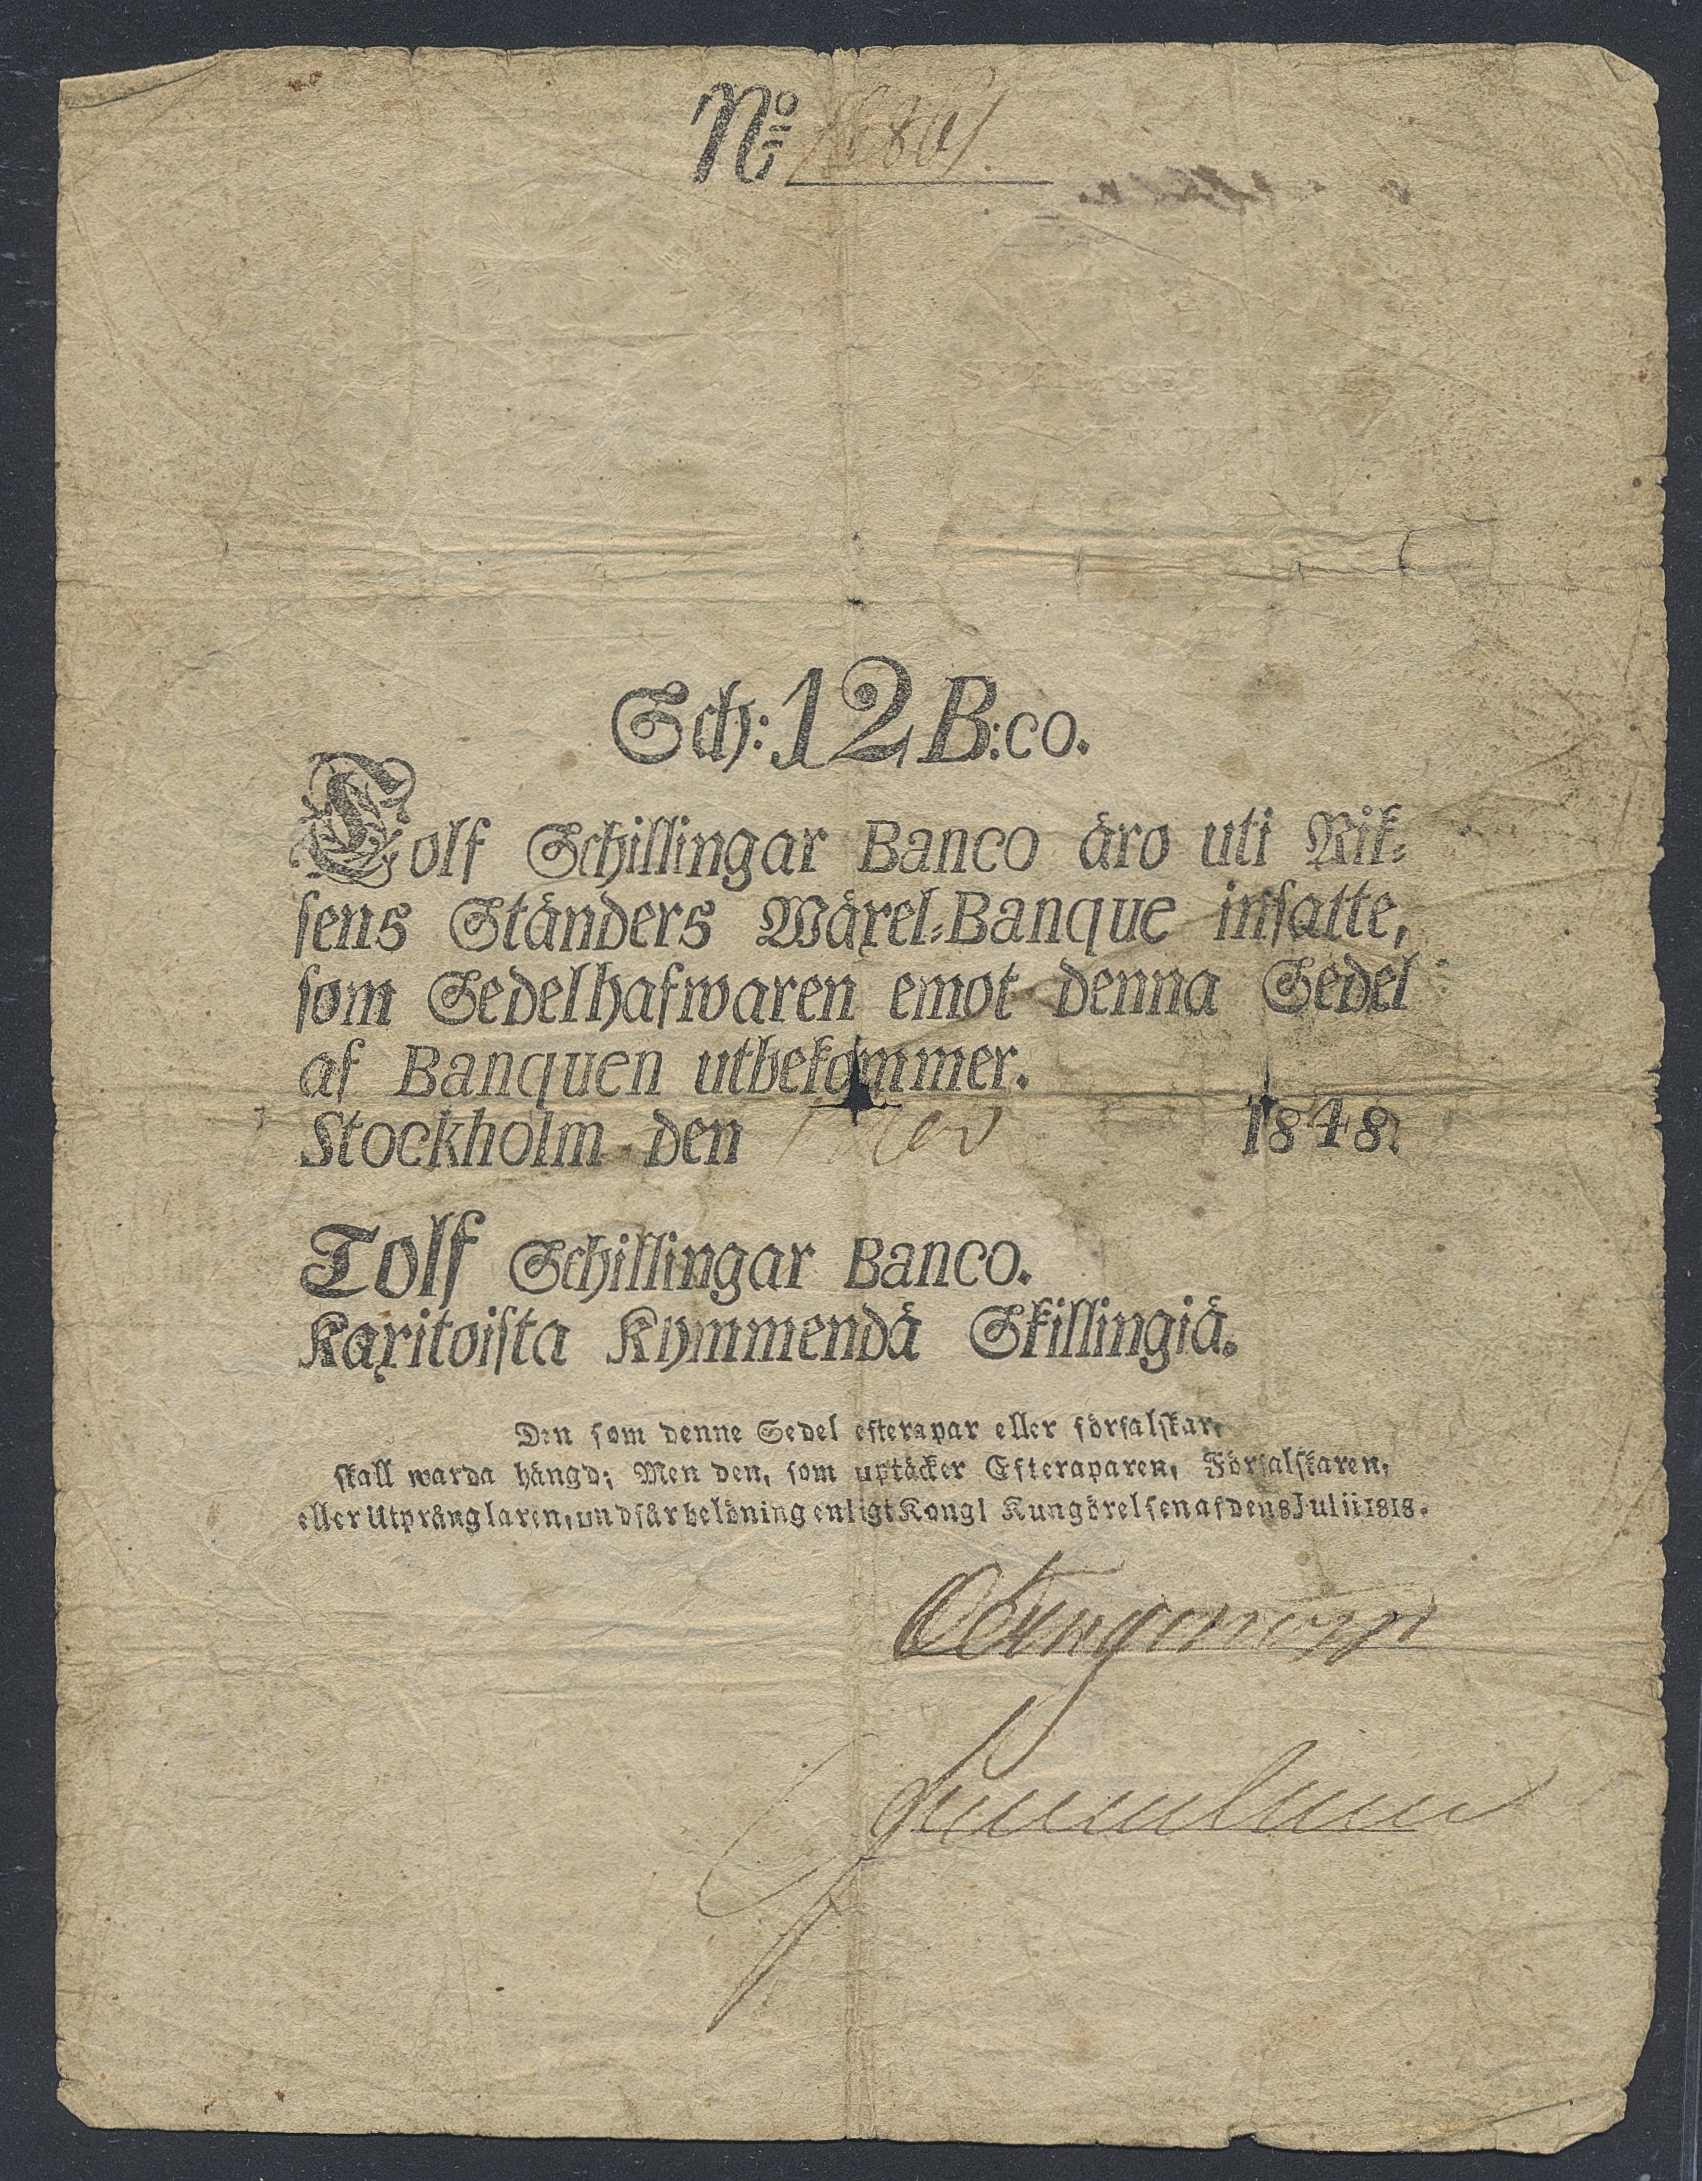 No
Sch: 12 B:co.
Tolf Schillingar Banco äro uti Rik=
sens Ständers Wäxel=Banque insatte,
som Sedelhafwaren emot denna Sedel
af Banquen utbekommer.
Stockholm den 1848.
Tolf Schillingar Banco.
Kaxitoista Kymmendä Skillingiä.
Den som denne Sedel efterapar eller förfalskar,
skall warda hängd; Men den, som uptäcker Efteraparen, Förfalskaren,
eller Utprånglaren, undfår belöning enligt Kongl Kungörelsen af den 8 Julii 1818.